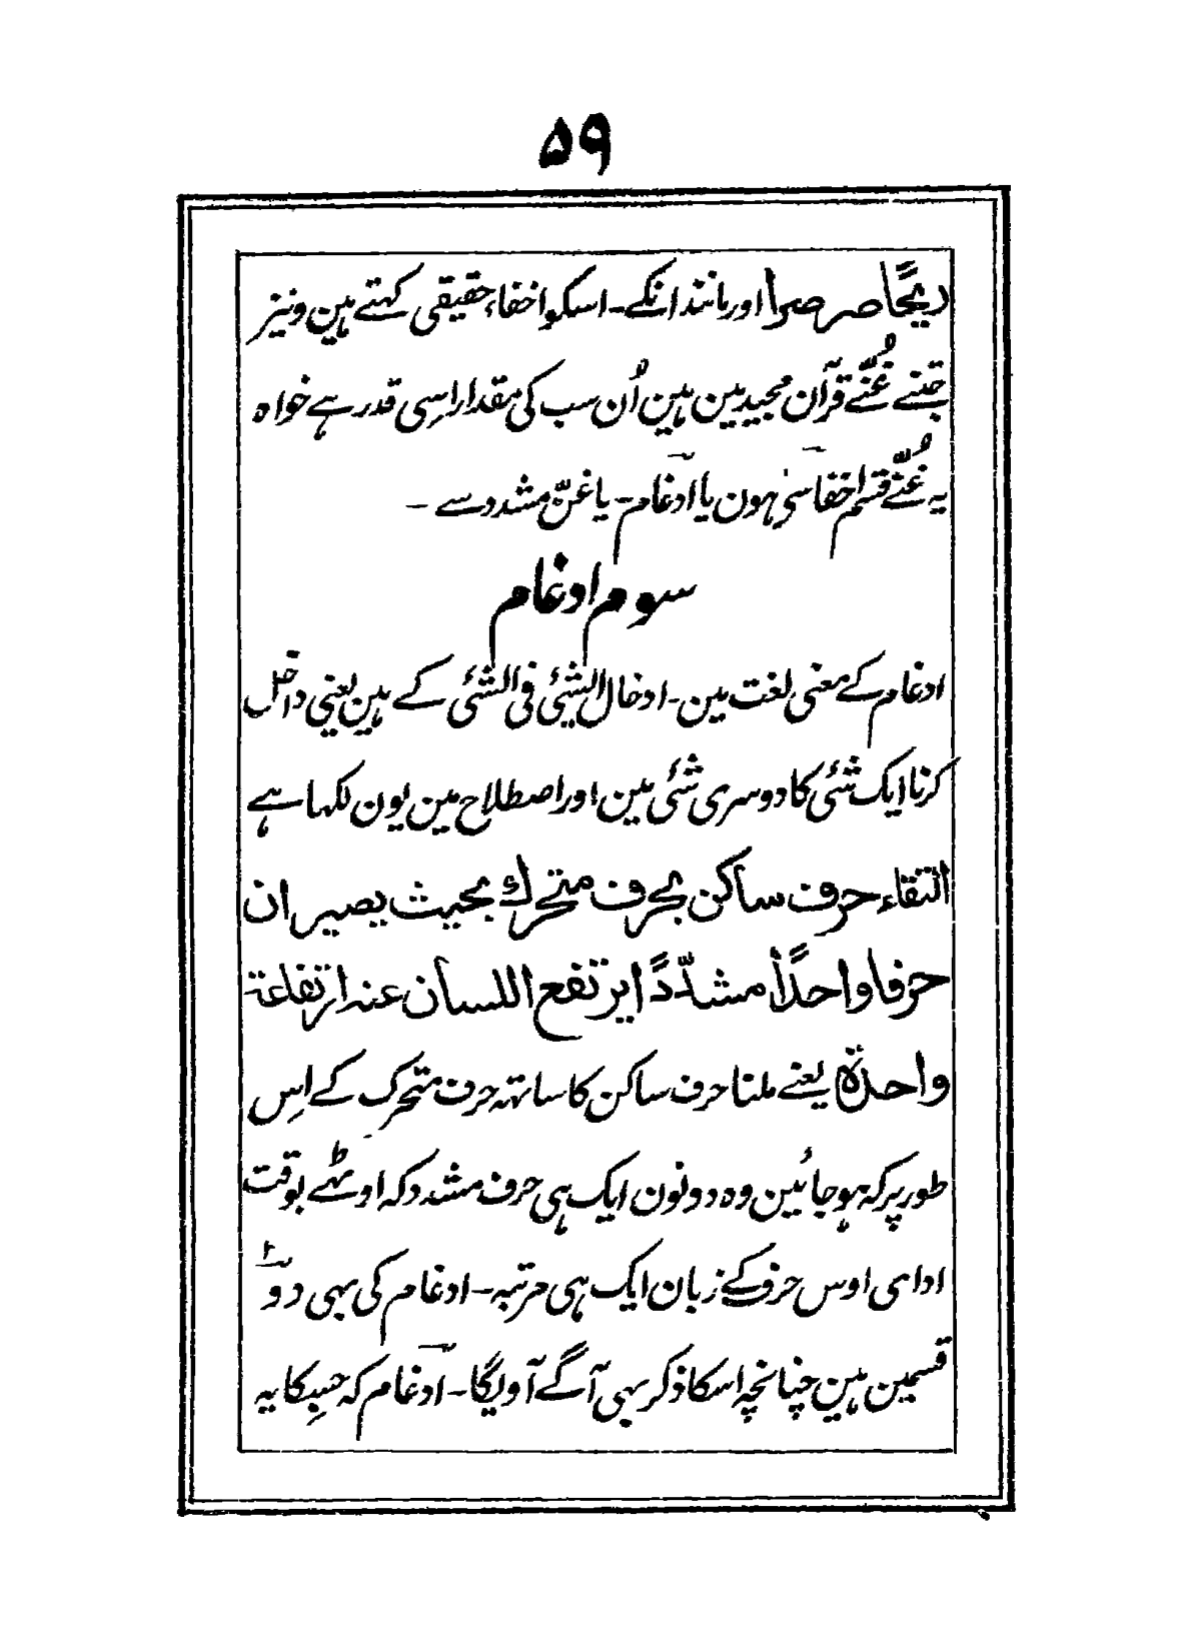 ۵۹
ریحًا صر صرا اور مانند انکے۔ اسکو اخفاء حقیقی کہتے ہین ونیز
جتنے غُنّے قرآن مجید مین ہین اُن سب کی مقدار اسِی قدر ہے خواہ
یہ غُنّے قسم اخفا سے ہون یا ادغام۔ یا غنّ مشدد سے ۔
سوم ادغام
ادغام کے معنی لغت مین۔ ادخال الشیٔی فی الشیٔی کے ہین یعنی داخل
کرنا ایک شئی کا دوسری شئی مین اور اصطلاح مین یون لکہا ہے
التقاء حرف ساکن بحرف متحرك بحیث یصیر ان
حرفا واحدًا مشدّدًا یرتفع اللسان عنہ ارتفاعۃ
واحدۃ یعنے ملنا حرف ساکن کا ساتہہ حرف متحرک کے اِس
طور پر کہ ہو جائین وہ دونون ایک ہی حرف مشدد کہ اوٹہے بوقت
ادای اوس حرف کے زبان ایک ہی مرتبہ۔ ادغام کی بہی دو
قسمین ہین چنانچہ اسکا ذکر بہی آگے آویگا۔ ادغام کہ جسکا یہ